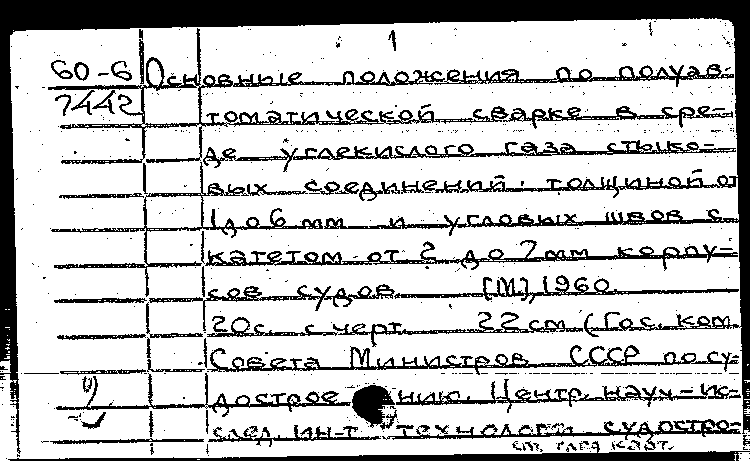 1
60-6 Основные положения по полуав-
7442 томатической сварке в сре-
де углекислого газа стыко-
вых соединений толщиной от
1 до 6 мм и угловых швов с
катетом от 2 до 7 мм корпу-
сов судов [М], 1960.
20с. с черт. 22 см (Гос. ком.
Совета Министров СССР по су-
достроению. Центр. науч-ис-
след. ин-т технологи судостро-
см. след карт.